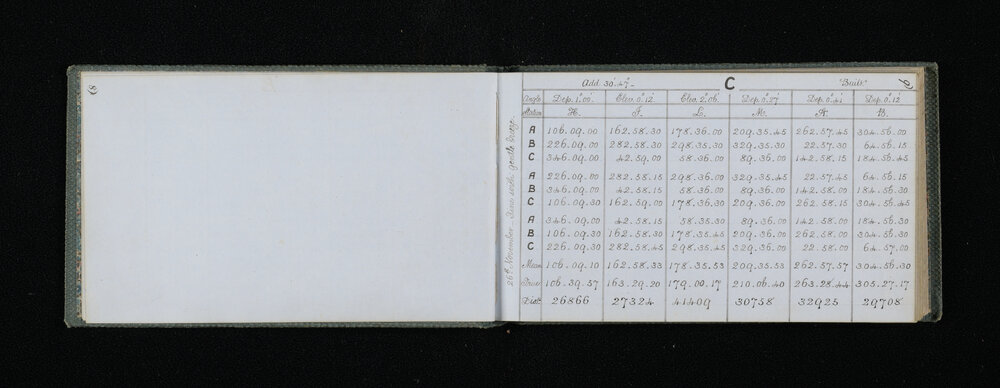 8
Add 30'.47" C "Buils" 9
Angle Dep. 1°.00' Elev. 0°.12' Elev. 2°.06' Dep. 0°.27' Dep. 0°.41' Dep. 0°.12'
Station H. J. L. M. A. B.
A 106.09.00 162.58.30 178.36.00 209.35.45 262.57.45 304.56.00
B 226.09.00 282.58.30 298.35.30 329.35.30 22.57.30 64.56.15
C 346.09.00 42.59.00 58.36.00 89.36.00 142.58.15 184.56.45
A 226.09.00 282.58.15 298.36.00 329.35.45 22.57.45 64.56.15
B 346.09.00 42.58.15 58.36.00 89.36.00 142.58.00 184.56.30
C 106.09.30 162.59.00 178.36.30 209.36.00 262.58.15 304.56.45
A 346.09.00 42.58.15 58.35.30 89.36.00 142.58.00 184.56.30
B 106.09.30 162.58.30 178.35.45 209.36.00 262.58.00 304.56.30
C 226.09.30 282.58.45 298.35.45 329.36.00 22.58.00 64.57.00
Mean 106.09.10 162.58.33 178.35.53 209.35.53 262.57.57 304.56.30
True 106.39.57 163.29.20 179.00.17 210.06.40 263.28.44 305.27.17
Dist. 26866 27324 41409 30758 32925 29708
26th November. Fine with gentle breeze.